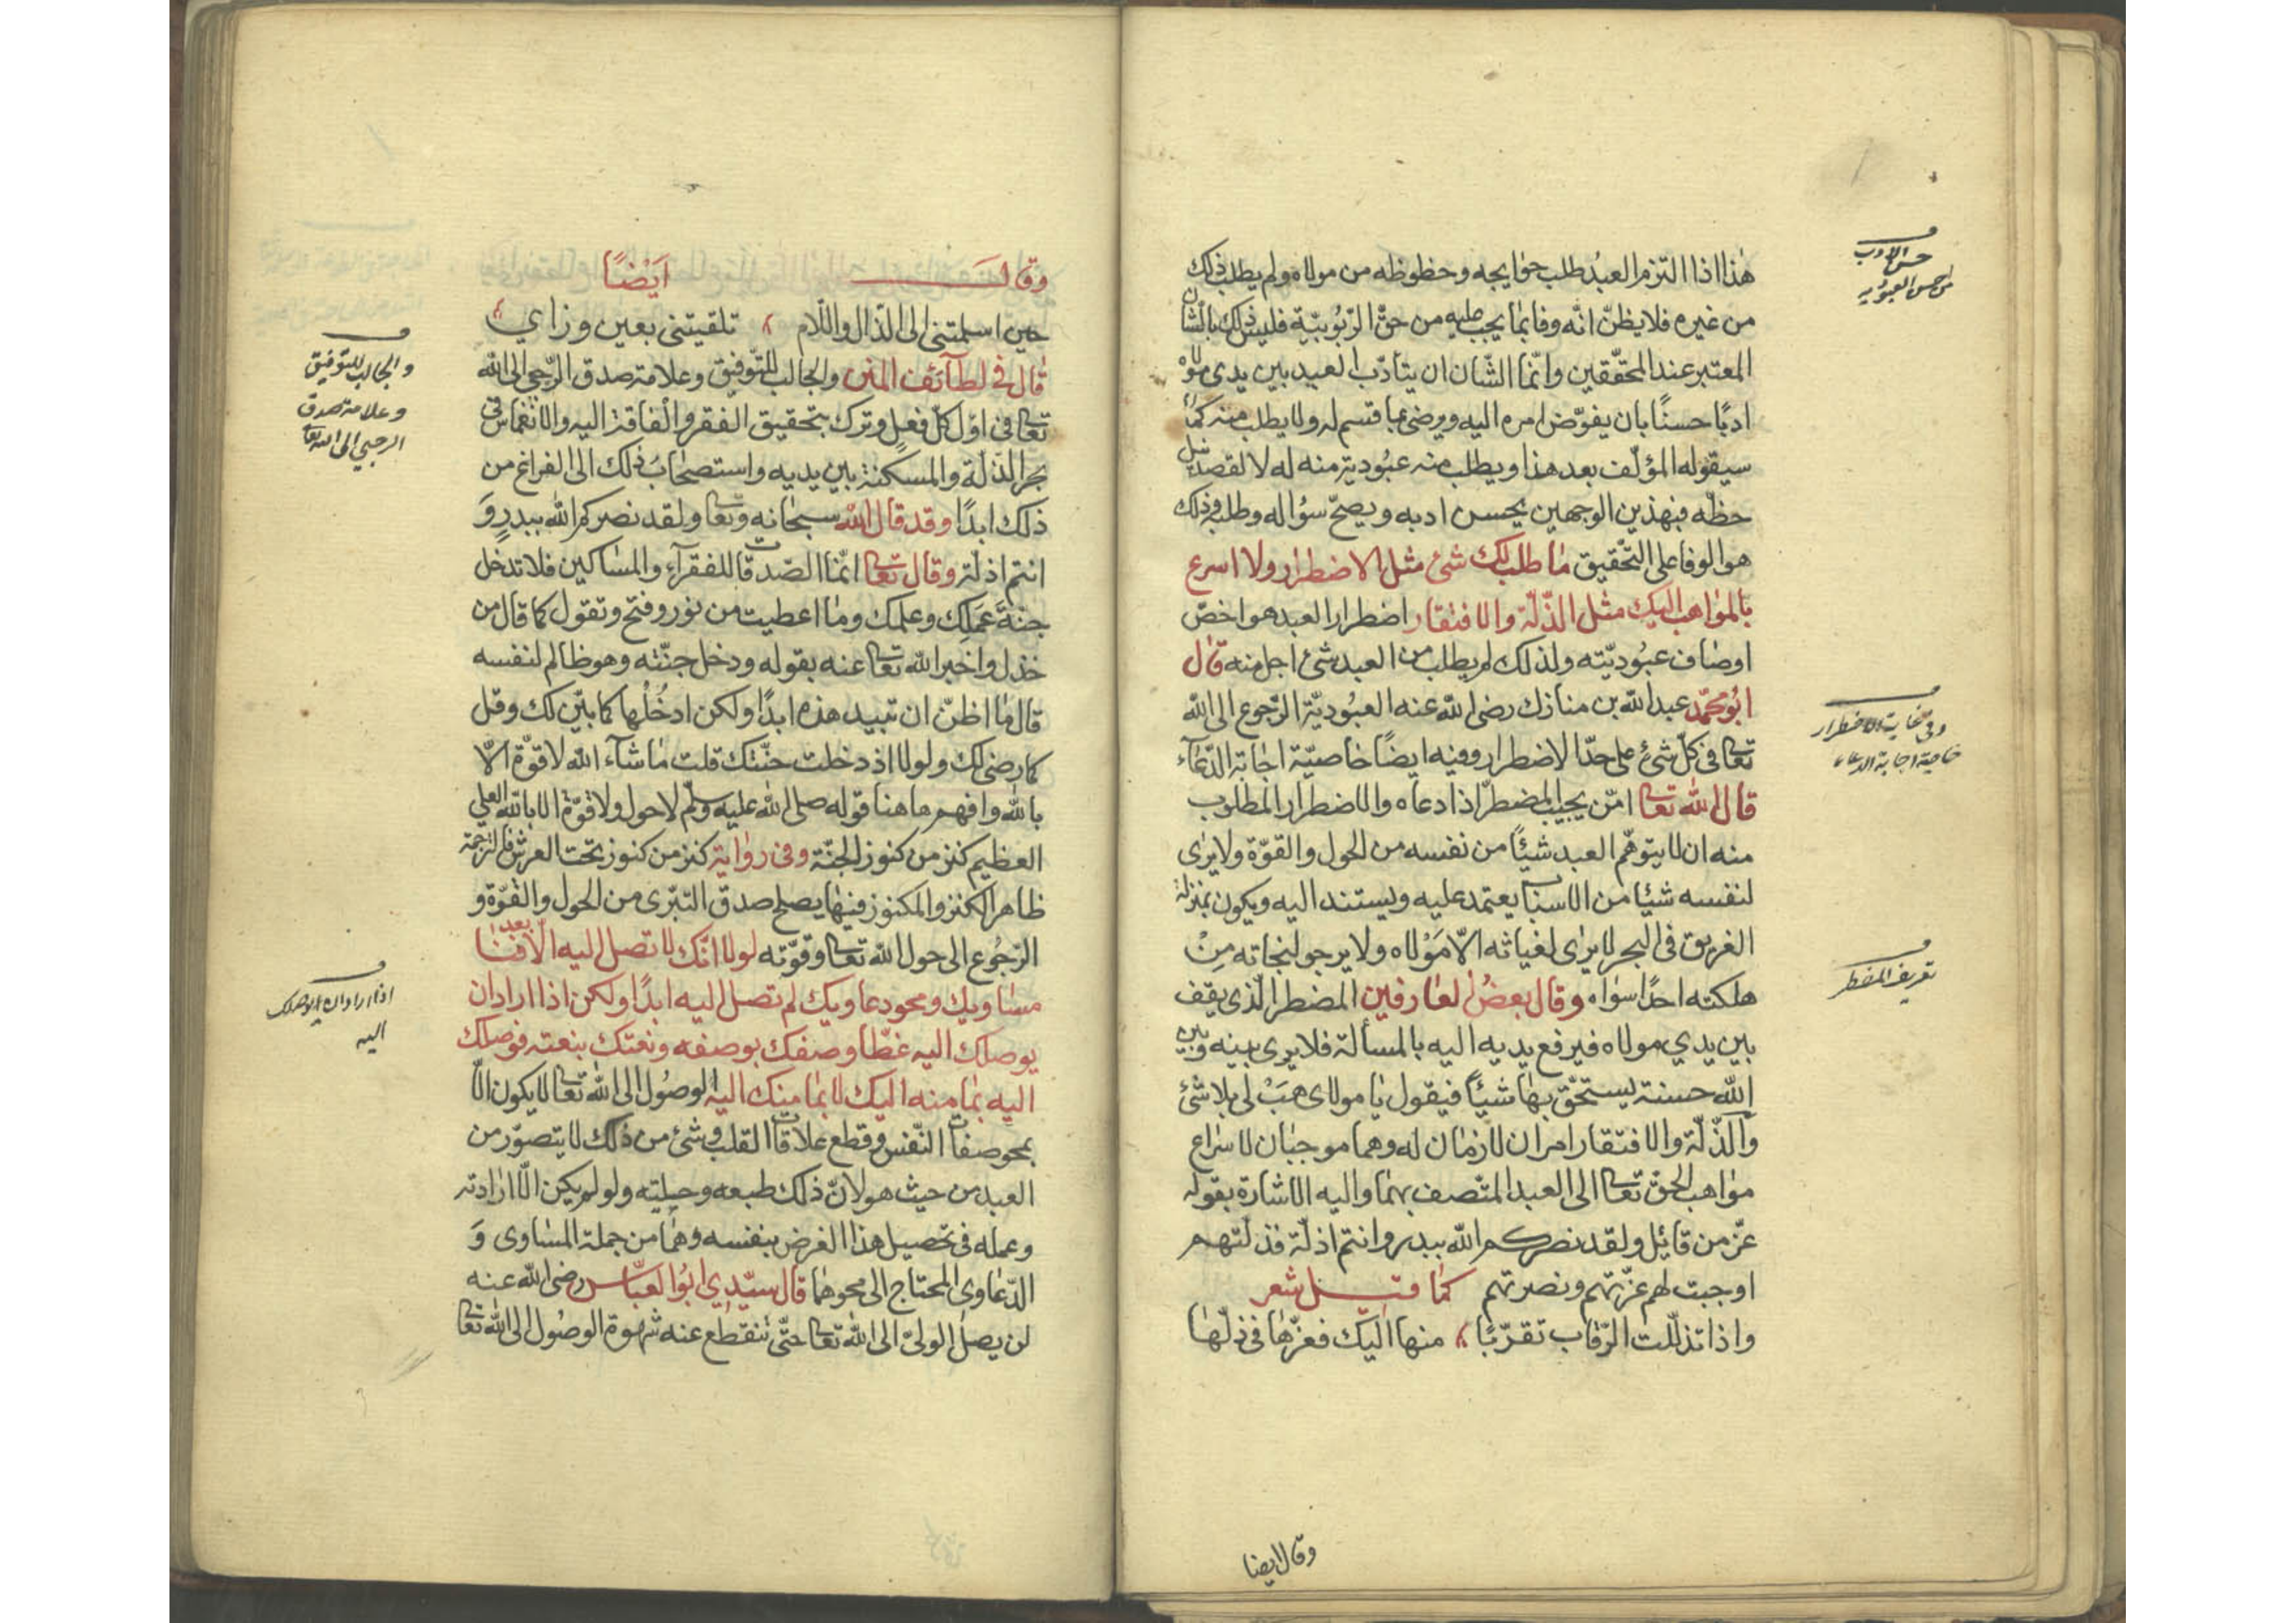 هٰذا اذا التزم العبدُ طلب حوايجه وحظوظه من مولاه ولم يطلب ذلك
من غيره فلا يظنّ انّه وفا بما يجب عليه من حقّ الرّبُوبيّة فليس ذلك بالشان
المعتبر عند المحقّقين وانّما الشّان ان يتأدّب العبيد بين يدى مولاه
ادبًا حسنًا بان يفوّض امره اليه ويرضى بما قسم له ولا يطلب منه كما
سيقوله المؤلّف بعد هذا ويطلب منه عبُودية منه له لا لقصد نيل
حظّه فبهذين الوجهين يحسن ادبه ويصحّ سؤاله وطلبه وذلك
هو الوفا على التّحقيق ما طلب لك شئ مثل الاضطرار ولا اسرع
بالمواهب اليك مثل الذّلّة والافتقار اضطرار العبد هو اخصّ
اوصاف عبُوديّته ولذلك لم يطلب من العبد شئ اجل منه قال
ابُو محمّد عبد الله بن منازك رضى الله عنه العبُوديّة الرّجوع الى الله
تعا فى كلّ شئ على حدّ الاضطرار وفيه ايضًا خاصيّة اجابة الدّعآء
قال الله تعا امّن يجيب المضطرّ اذا دعاه والاضطرار المطلوب
منه ان لا يتوهّم العبد شئًا من نفسه من الحول والقوّة ولا يرٰى
لنفسه شئا من الاسباب يعتمد عليه ويستند اليه ويكون بمنزلة
الغريق فى البحر لا يرٰى لغياثه الّا مَوْلاه ولا يرجو لنجاته مِنْ
هلكته احدًا سواه وقال بعضُ العارفين المضطر الّذى يقف
بين يدي مولاه فيرفع يديه اليه بالمسألة فلا يرى بينه وبين
الله حسنة يستحقّ بها شئًا فيقول يا مولاى هَبْ لى بلا شئ
والذّلّة والافتقار امران لازمان له وهما موجبان لاسراع
مواهب الحقّ تعا الى العبد المتّصف بهما واليه الاشارة بقوله
عزّ من قائل ولقد نصركم الله ببدر وانتم اذلّة فذلّتهم
اوجبت لهم عزّتهم ونصرتهم كما قيل شعر
واذا تذلّلت الرّقاب تقرّبًا منها اليك فعزّها فى ذلّها
وقال ايضا
حسن الادب
من احسن العبوديه
وفى خاصية الاضطرار
خاصية اجابة الدعاء
تعريف المضطر
وقالَ ايَضْاً
حين اسلمتنى الى الذّال واللّام تلقيتنى بعين وزاي
قال فى لطآئف المنن والجالب للتّوفيق وعلامة صدق الرّجعى الى الله
تعا فى اوّل كلّ فعل وترك بتحقيق الفقر والفاقة اليه والانغماس فى
بحر الذلة والمسكنة بين يديه واستصحابُ ذلك الى الفراغ من
ذلك ابدًا وقد قال الله سبحانه وتعا ولقد نصركم الله ببدرٍ وَ
انتم اذلّة وقال تعا انّما الصّدقات للفقرآء والمساكين فلا تدخل
جنّةَ عَمَلِك وعلمك وما اعطيت من نور وفتح وتقول كما قال من
خذل واخبر الله تعا عنه بقوله ودخل جنّته وهو ظالم لنفسه
قال ما اظنّ ان تبيد هذه ابدًا ولكن ادخُلْها كما بيّن لك وقل
كما رضى لك ولولا اذ دخلت جنّتك قلت ما شآء الله لا قوّة الّا
بالله وافهم ها هنا قوله صلى الله عليه وسلّم لا حول ولا قوّة الا بالله العلي
العظيم كنز من كنوز الجنّة وفى رواية كنز من كنوز تحت العرش فالترجمة
ظاهر الكنز والمكنوز فيها يصلح صدق التبرّى من الحول والقوّة و
الرّجُوع الى حول الله تعا وقوّته لولا انّك لا تصل اليه الّا بعد فنا
مساويك ومحو دعاويك لم تصل اليه ابدًا ولكن اذا اراد ان
يوصلك اليه غطّا وصفك بوصفه ونعتك بنعته فوصلك
اليه بما منه اليك لا بما منك اليه الوصُول الى الله تعا لا يكون الّا
بمحو صفات النّفس وقطع علاقات القلب وشئ من ذلك لا يتصوّر من
العبد من حيث هو لانّ ذلك طبعه وجبلته ولو لم يكن الّا ارادته
وعمله فى تحصيل هذا الغرض بنفسه وهما من جملة المساوى وَ
الدّعاوى المحتاج الى محوهما قال سيّدي ابُو العبّاس رضى الله عنه
لن يصل الولىّ الى الله تعا حتّى تنقطع عنه شهوة الوصُول الى الله تعا
والجالب للتوفيق
وعلامة صدق
الرجعى الى الله تعا
اذا اراد ان يوصلك
اليه